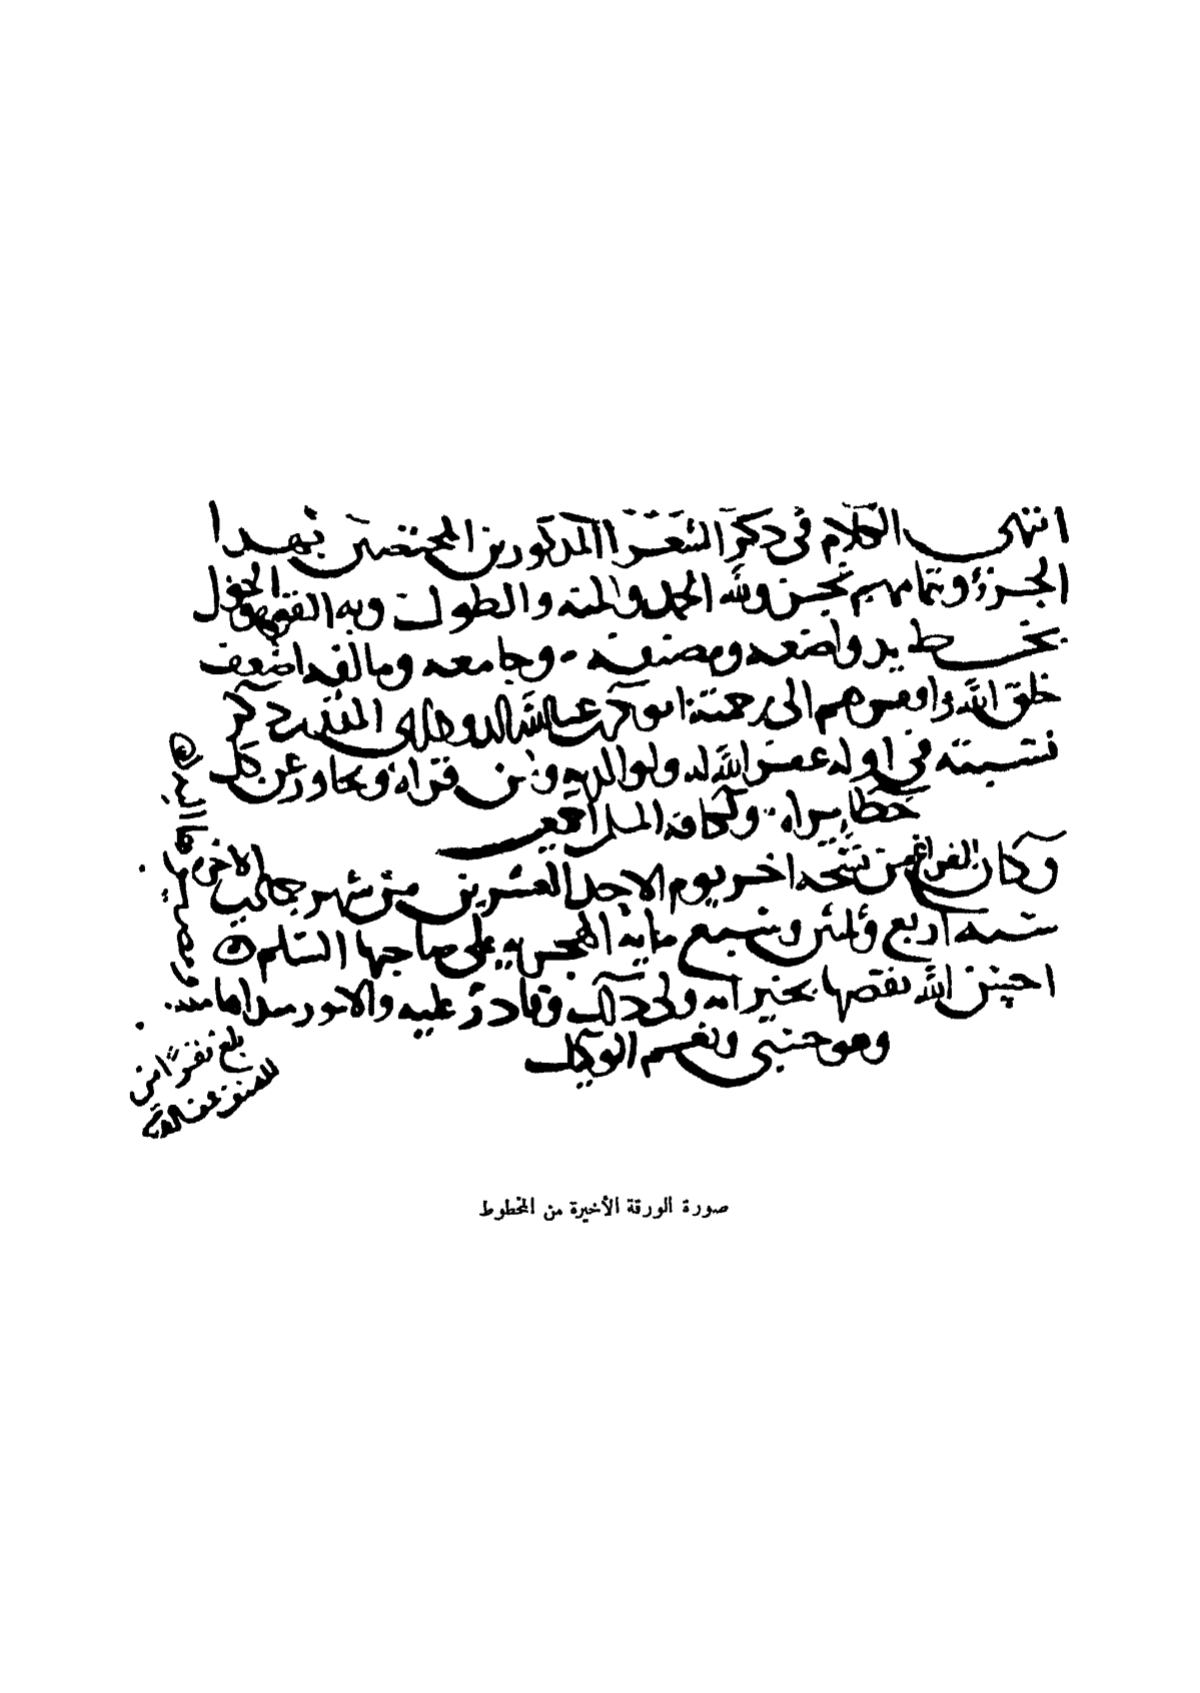 انتهى الكلام في ذكر الشعرا المذكورين المختصين بهدا
الجزء وتمامهم نجز ولله الحمد والمنه والطول وبه القوه والحول
بخط يد واضعه ومصنفه وجامعه ومالفه اضعف
خلق الله وافقرهم الى رحمته ابو بكر عبد الله الدواداري
نسبته في اوله غفر الله له ولوالديه ولمن قراه وتجاوز عن كل
خطا يراه ولكافة المسلمين اجمعين
وكان الفراغ من نسخه اخر يوم الاحد العشرين من شهر جمادى الاخره
سنه اربع وثلثين وسبع مايه الهجريه على صاحبها السلم
احسن الله نقصها بخير انه ولي ذلك وقادر عليه والامور
وهو حسبي ونعم الوكيل
ومصيرها اليه
بلغ
صورة الورقة الأخيرة من المخطوط